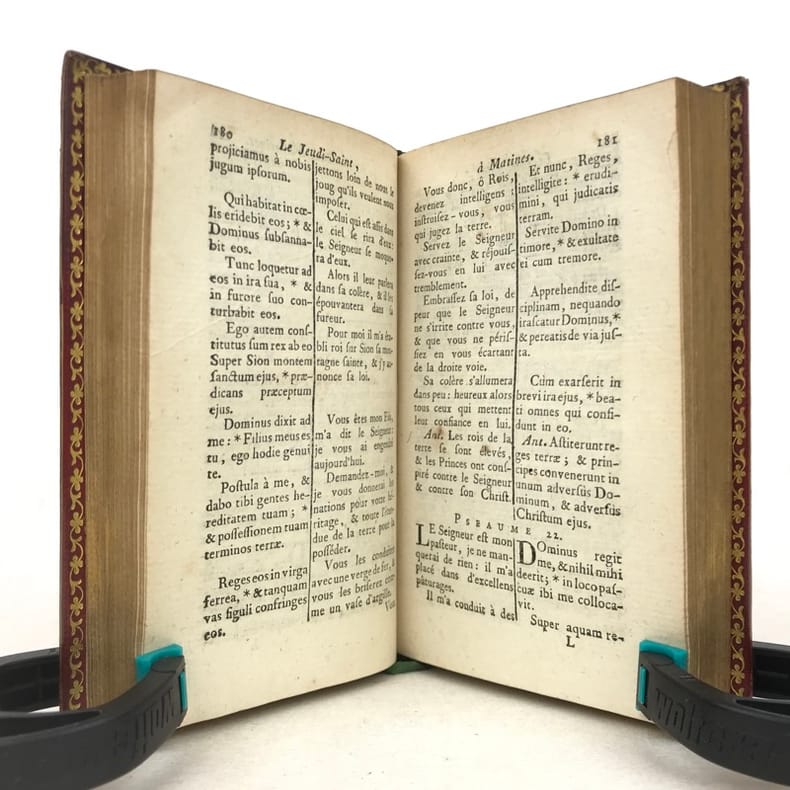 180
Le Jeudi-Saint,
projiciamus à nobis
jugum ipsorum.
Qui habitat in cœ-
lis eridebit eos; * &
Dominus subsanna-
bit eos.
Tunc loquetur ad
eos in ira sua, * &
in furore suo con-
turbabit eos.
Ego autem cons-
titutus sum rex ab eo
Super Sion montem
sanctum ejus, * præ-
dicans præceptum
ejus.
Dominus dixit ad
me: * Filius meus es
tu, ego hodie genui
te.
Postula à me, &
dabo tibi gentes he-
reditatem tuam; *
& possessionem tuam
terminos terræ.
Reges eos in virga
ferrea, * & tanquam
vas figuli confringes
eos.
jettons loin de nous le
joug qu'ils veulent nous
imposer.
Celui qui est assis dans
le ciel se rira d'eux:
le Seigneur se moque-
ra d'eux.
Alors il leur parlera
dans sa colère, & il les
épouvantera dans sa
fureur.
Pour moi il m'a éta-
bli roi sur Sion sa mon-
tagne sainte, & j'y an-
nonce sa loi.
Vous êtes mon Fils,
m'a dit le Seigneur:
je vous ai engendré
aujourd'hui.
Demandez-moi, &
je vous donnerai les
nations pour votre hé-
ritage, & toute l'éten-
due de la terre pour la
posséder.
Vous les conduirez
avec une verge de fer, &
vous les briserez com-
me un vase d'argille.
Vous
à Matines.
181
Vous donc, ô Rois,
devenez intelligens:
instruisez-vous, vous
qui jugez la terre.
Servez le Seigneur
avec crainte, & réjouis-
sez-vous en lui avec
tremblement.
Embrassez sa loi, de
peur que le Seigneur
ne s'irrite contre vous,
& que vous ne péris-
siez en vous écartant
de la droite voie.
Sa colère s'allumera
dans peu: heureux alors
tous ceux qui mettent
leur confiance en lui.
Ant. Les rois de la
terre se sont élevés,
& les Princes ont cons-
piré contre le Seigneur
& contre son Christ.
Et nunc, Reges,
intelligite: * erudi-
mini, qui judicatis
terram.
Servite Domino in
timore, * & exultate
ei cum tremore.
Apprehendite dis-
ciplinam, nequando
irascatur Dominus, *
& pereatis de via jus-
ta.
Cùm exarserit in
brevi ira ejus, * bea-
ti omnes qui confi-
dunt in eo.
Ant. Astiterunt re-
ges terræ; & prin-
cipes convenerunt in
unum adversùs Do-
minum, & adversùs
Christum ejus.
PSEAUME 22.
LE Seigneur est mon
pasteur, je ne man-
querai de rien: il m'a
placé dans d'excellens
pâturages.
Il m'a conduit à des
Dominus regit
me, & nihil mihi
deerit; * in loco pas-
cuæ ibi me colloca-
vit.
Super aquam re-
L